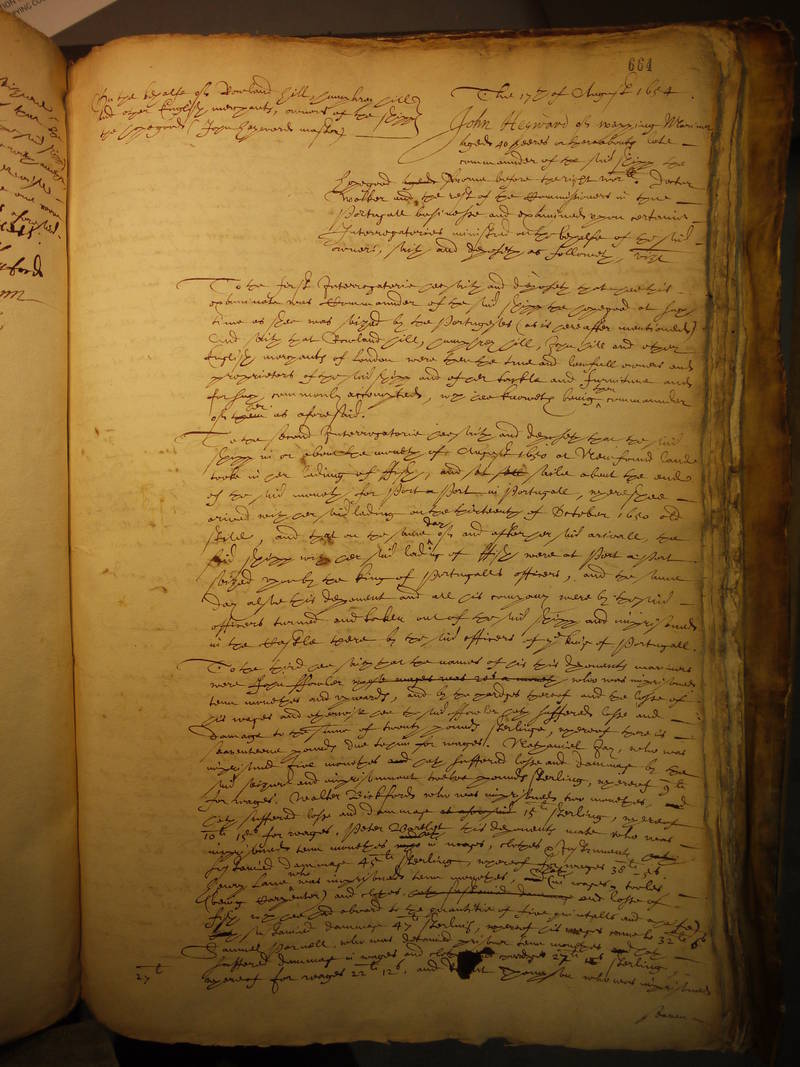 664
On the behalfe of Rowland Hill, Humphrey Hill
and other English merchants, owners of the shipp
the Hopegood (John Heywards master)
The 17th of August 1654.
John Heyward of Wapping Mariner
aged 40 yeeres or thereabouts late
commander of the said shipp the
Hopegood before the right Doctor
Walker and the rest of the Commissioners in the
Portugall businesse and examined upon certaine
Interrogatories ministred on the behalfe of the said
owners, saith and deposeth as followeth, vizt
To the first Interrogatorie hee saith and deposeth that hee this
examinate was Commander of the said shipp the Hopegood at such
time as shee was seized by the Portugueses (as is hereafter mentioned)
And saith that Rowland Hill, Humfrey Hill, John Hill and other
English merchants of London were then the true and lawfull owners and
proprietors of the said shipp and of her tackle and furniture and
for such commonly accompted, wch hee knoweth being then commander
of her as aforesaid.
To the second Interrogatorie hee saith and deposeth that the said
shipp in or about the moneth of August 1650 at Newfound lande
tooke in her lading of ffish, and saile about the ende
of the said moneth for Port a Port in Portugall, where shee
arived with her said lading on the thirteeth of October 1650 old
stile, and that on the same day of and after her said arivall, the
said shipp with her said lading of ffish were at Port a Port
seized upon by the king of Portugalls officers, and the same
day alsoe this deponent and all his company were by the said
officers turned and taken out of the said shipp and imprisoned
in the Castle there by the said officers of ye king of Portugall.
To the third hee saith that the names of his this deponents marriners
were John ffowler who was imprisoned
tenn monethes and upwards, and by the hardges thereof and the losse of
his wages and otherwise hee the said ffowler hath suffered losse and
damage to the summe of twenty pounds sterling, whereof there is
seaventeene pounds due to him for wages. Nathaniel Fay, who was
imprisoned five monethes hath suffered losse and damage by the
said seizure and imprisonment twelve pounds sterling, whereof 9li
for wages. Walter Bickford who was imprisoned two monethes, and
hath suffered losse and dammage 15li sterling, whereof
10li 15s for wages, Peter Bartlet this deponents mate who was
imprisoned tenn monethes in wages, clothes & Instruments
sustained dammage 45li sterling, whereof for wages 38li
Henry Lane who was imprisoned tenn monethes, in wages, tooles
(being Carpenter) and clothes and losse of
fish wch hee had aboard to the quantitie of five quintalls and a halfe)
sustained damage 47li sterling, whereof his wages come to 32li
Samuel Parnell, who was detained prisoner tenn monethes hath
suffered dammage in wages and clothes 27li sterling,
27li
whereof for wages 22li 12s, and who was imprisoned
tenn